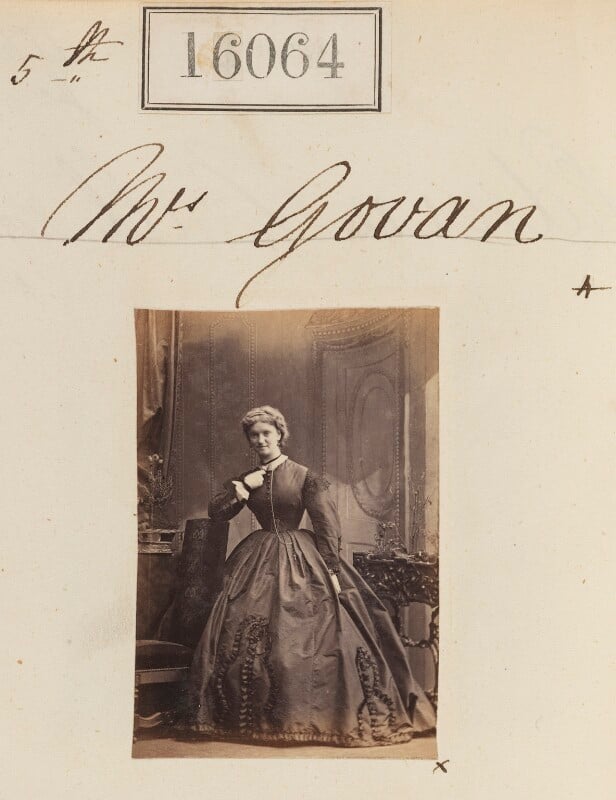 5th 16064
Mrs Govan
A
x